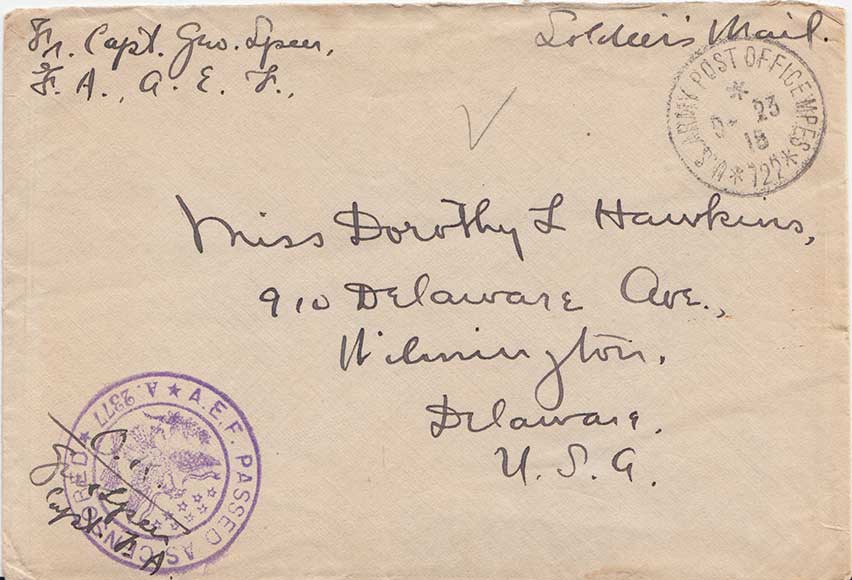 Fr. Capt. Geo. Speer,
F. A., A. E. F.,
Soldier's Mail.
U.S. ARMY POST OFFICE MPES
* 23
18
* 722 *
Miss Dorothy L Hawkins,
910 Delaware Ave.,
Wilmington,
Delaware.
U. S. A.
A.E.F. PASSED AS CENSORED
★ A. 2377 ★
Speer
Capt. F A